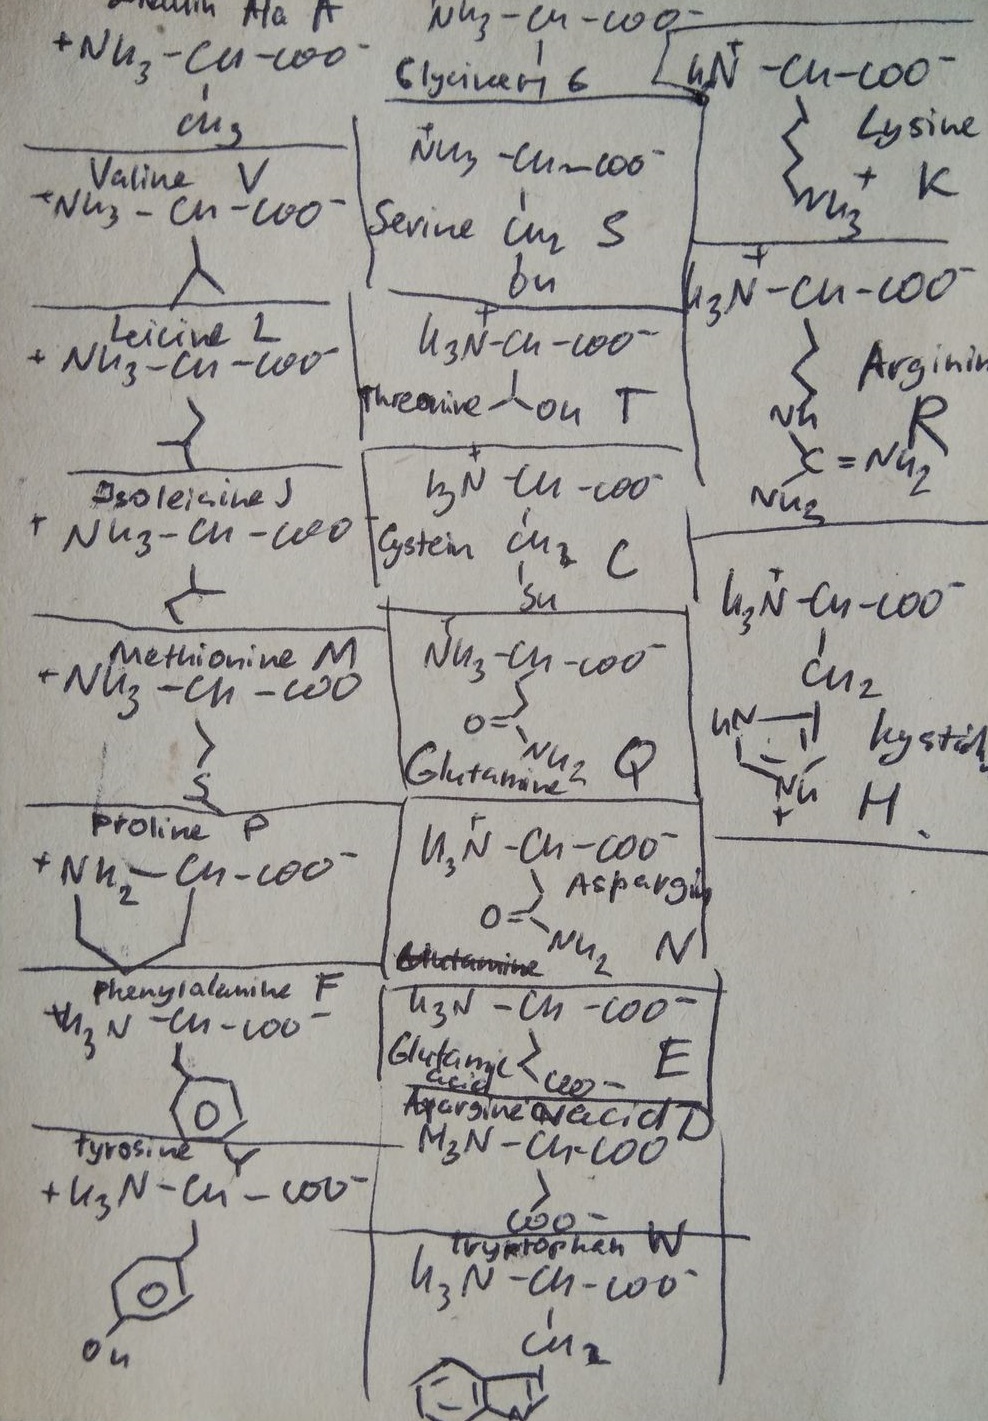 Ala A
+NH3-CH-COO-
CH3
Valine V
+NH3-CH-COO-
Leicine L
+NH3-CH-COO-
Isoleicine I
+NH3-CH-COO-
Methionine M
+NH3-CH-COO
S
Proline P
+NH2-CH-COO-
Phenylalanine F
+H3N-CH-COO-
Tyrosine Y
+H3N-CH-COO-
OH
NH3-CH-COO-
Glycine H G
+NH3-CH-COO-
Serine CH2 S
OH
H3N+-CH-COO-
Threonine OH T
H3N+-CH-COO-
Cystein CH2 C
SH
NH3-CH-COO-
O=
NH2
Glutamine Q
H3N+-CH-COO-
Aspargin
O=
NH2 N
Glutamine
H3N-CH-COO-
Glutamic E
acid COO-
Aspargine acid D
H3N-CH-COO
COO-
Tryptophan W
H3N-CH-COO-
CH2
N
HN+-CH-COO-
Lysine
+ K
NH3
H3N+-CH-COO-
Arginin
NH R
C=NH2
NH2
H3N+-CH-COO-
CH2
HN
NH
+ H